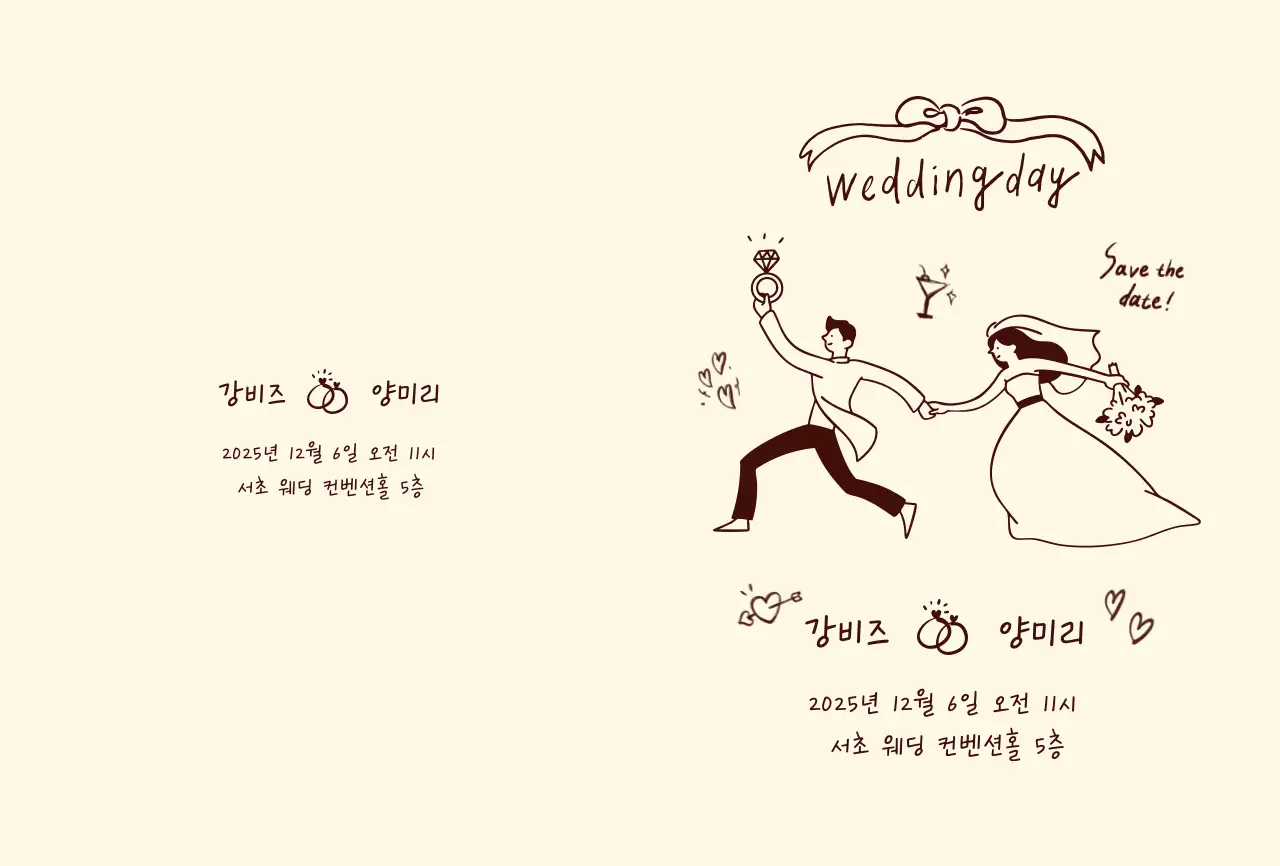 강비즈 양미리
2025년 12월 6일 오전 11시
서초 웨딩 컨벤션홀 5층
weddingday
Save the
date!
강비즈 양미리
2025년 12월 6일 오전 11시
서초 웨딩 컨벤션홀 5층